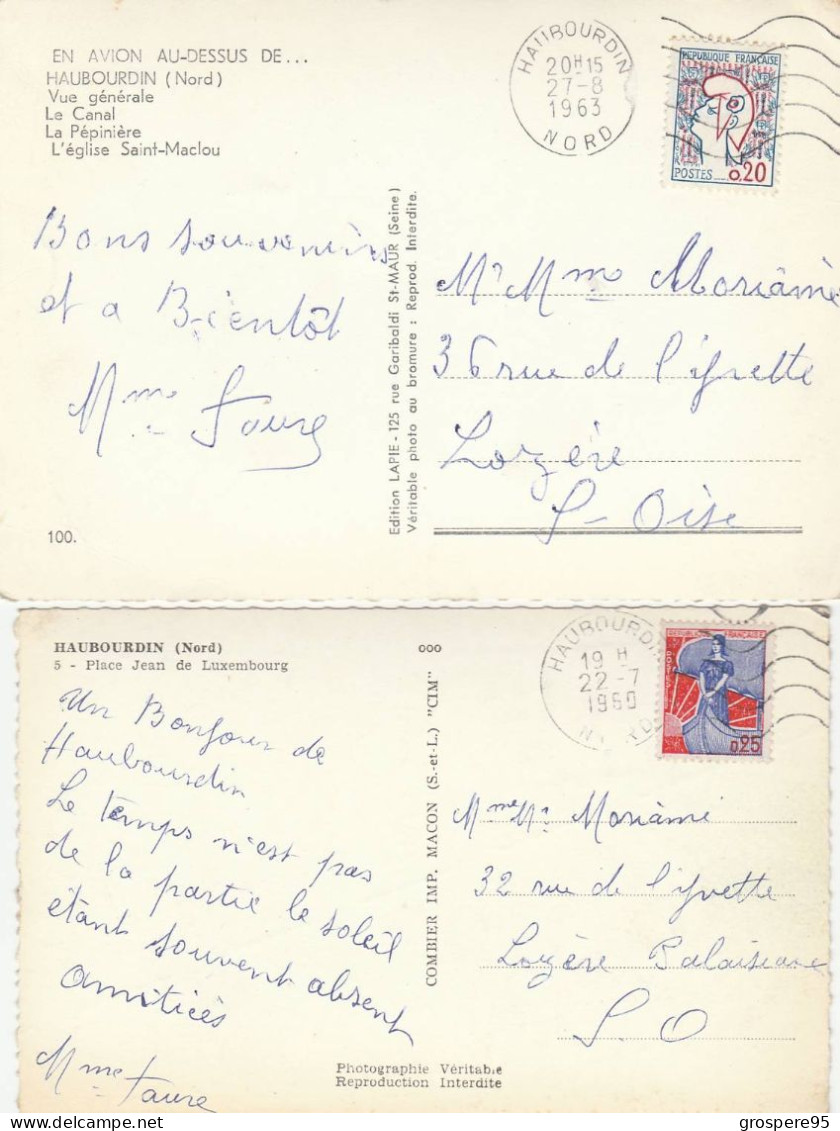 EN AVION AU-DESSUS DE...
HAUBOURDIN (Nord)
Vue générale
Le Canal
La Pépinière
L'église Saint-Maclou
HAUBOURDIN
20H15
27-8
1963
NORD
REPUBLIQUE FRANÇAISE
POSTES 0,20
Bons souvenirs
et a Bientôt
Mme Faure
100.
Edition LAPIE - 125 rue Garibaldi St-MAUR (Seine)
Véritable photo au bromure : Reprod. Interdite.
Mr Mme Moriâmé
36 rue de l'yvette
Lozère
S-Oise
HAUBOURDIN (Nord)
5 - Place Jean de Luxembourg
000
HAUBOURDIN
19 H
22-7
1960
NORD
0,25
Un Bonjour de
Haubourdin
Le temps n'est pas
de la partie le soleil
étant souvent absent
amitiées
Mme Faure
COMBIER IMP. MACON (S.-et-L.) "CIM"
Mme Mr Moriâmé
32 rue de l'yvette
Lozère Palaiseau
S. O
Photographie Véritable
Reproduction Interdite
https://www.delcampe.net
grospere95